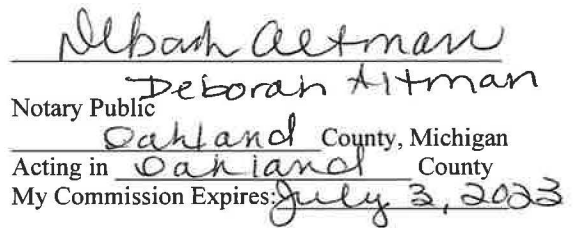 Deborah Altman
Deborah Altman
Notary Public
Oakland County, Michigan
Acting in Oakland County
My Commission Expires: July 3, 2023